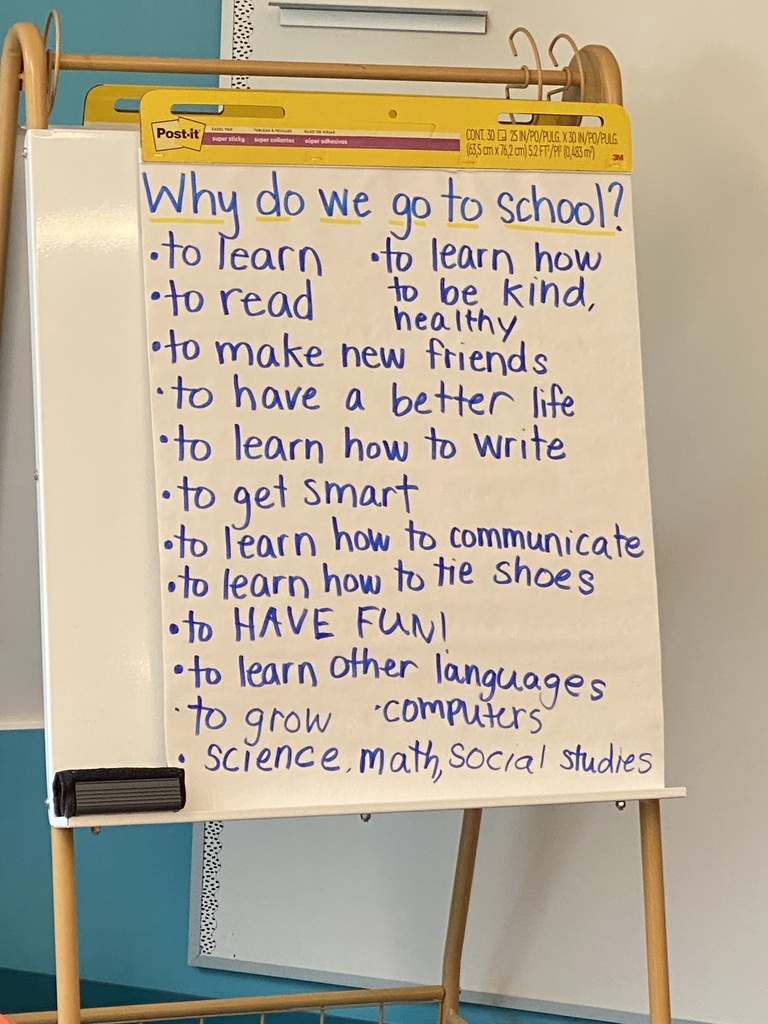 Post-it
EASEL PAD TABLEAU À FEUILLES BLOC DE HOJAS
super sticky super collantes súper adhesivas
CONT. 30 25 IN/PO/PULG. X 30 IN/PO/PULG.
(63,5 cm x 76,2 cm) 5.2 FT²/PI² (0,483 m²)
3M
Why do we go to school?
•to learn •to learn how
•to read to be kind,
healthy
•to make new friends
•to have a better life
•to learn how to write
•to get smart
•to learn how to communicate
•to learn how to tie shoes
•to HAVE FUN!
•to learn other languages
•to grow •computers
• science, math, social studies